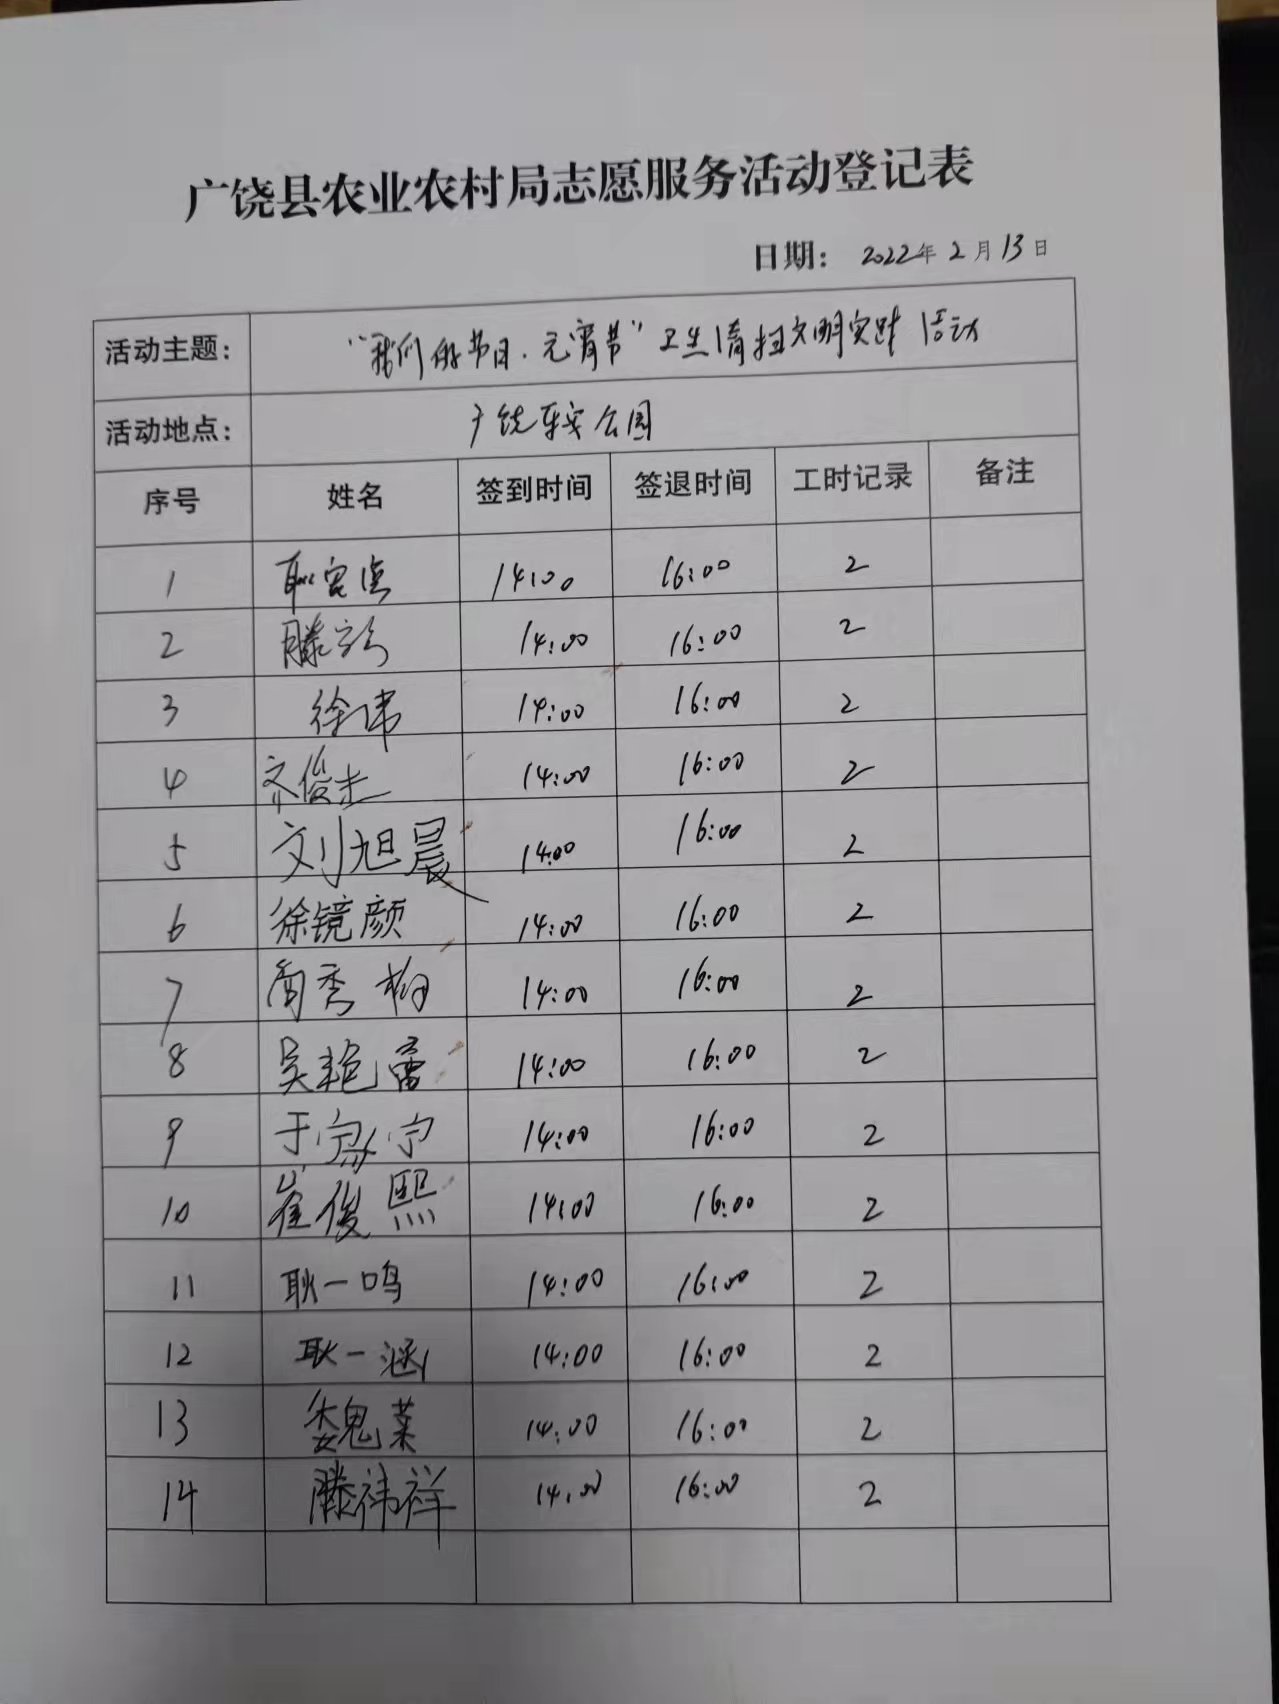 广饶县农业农村局志愿服务活动登记表
日期: 2022年2月13日
活动主题: “我们的节日·元宵节”卫生清扫文明实践活动
活动地点: 广饶乐安公园
序号 姓名 签到时间 签退时间 工时记录 备注
1 14:00 16:00 2
2 滕 14:00 16:00 2
3 徐伟 14:00 16:00 2
4 齐俊杰 14:00 16:00 2
5 刘旭晨 14:00 16:00 2
6 徐镜颜 14:00 16:00 2
7 周秀梅 14:00 16:00 2
8 吴艳蕾 14:00 16:00 2
9 于 宁 14:00 16:00 2
10 崔俊熙 14:00 16:00 2
11 耿一鸣 14:00 16:00 2
12 耿一涵 14:00 16:00 2
13 魏菜 14:00 16:00 2
14 滕祎祥 14:00 16:00 2